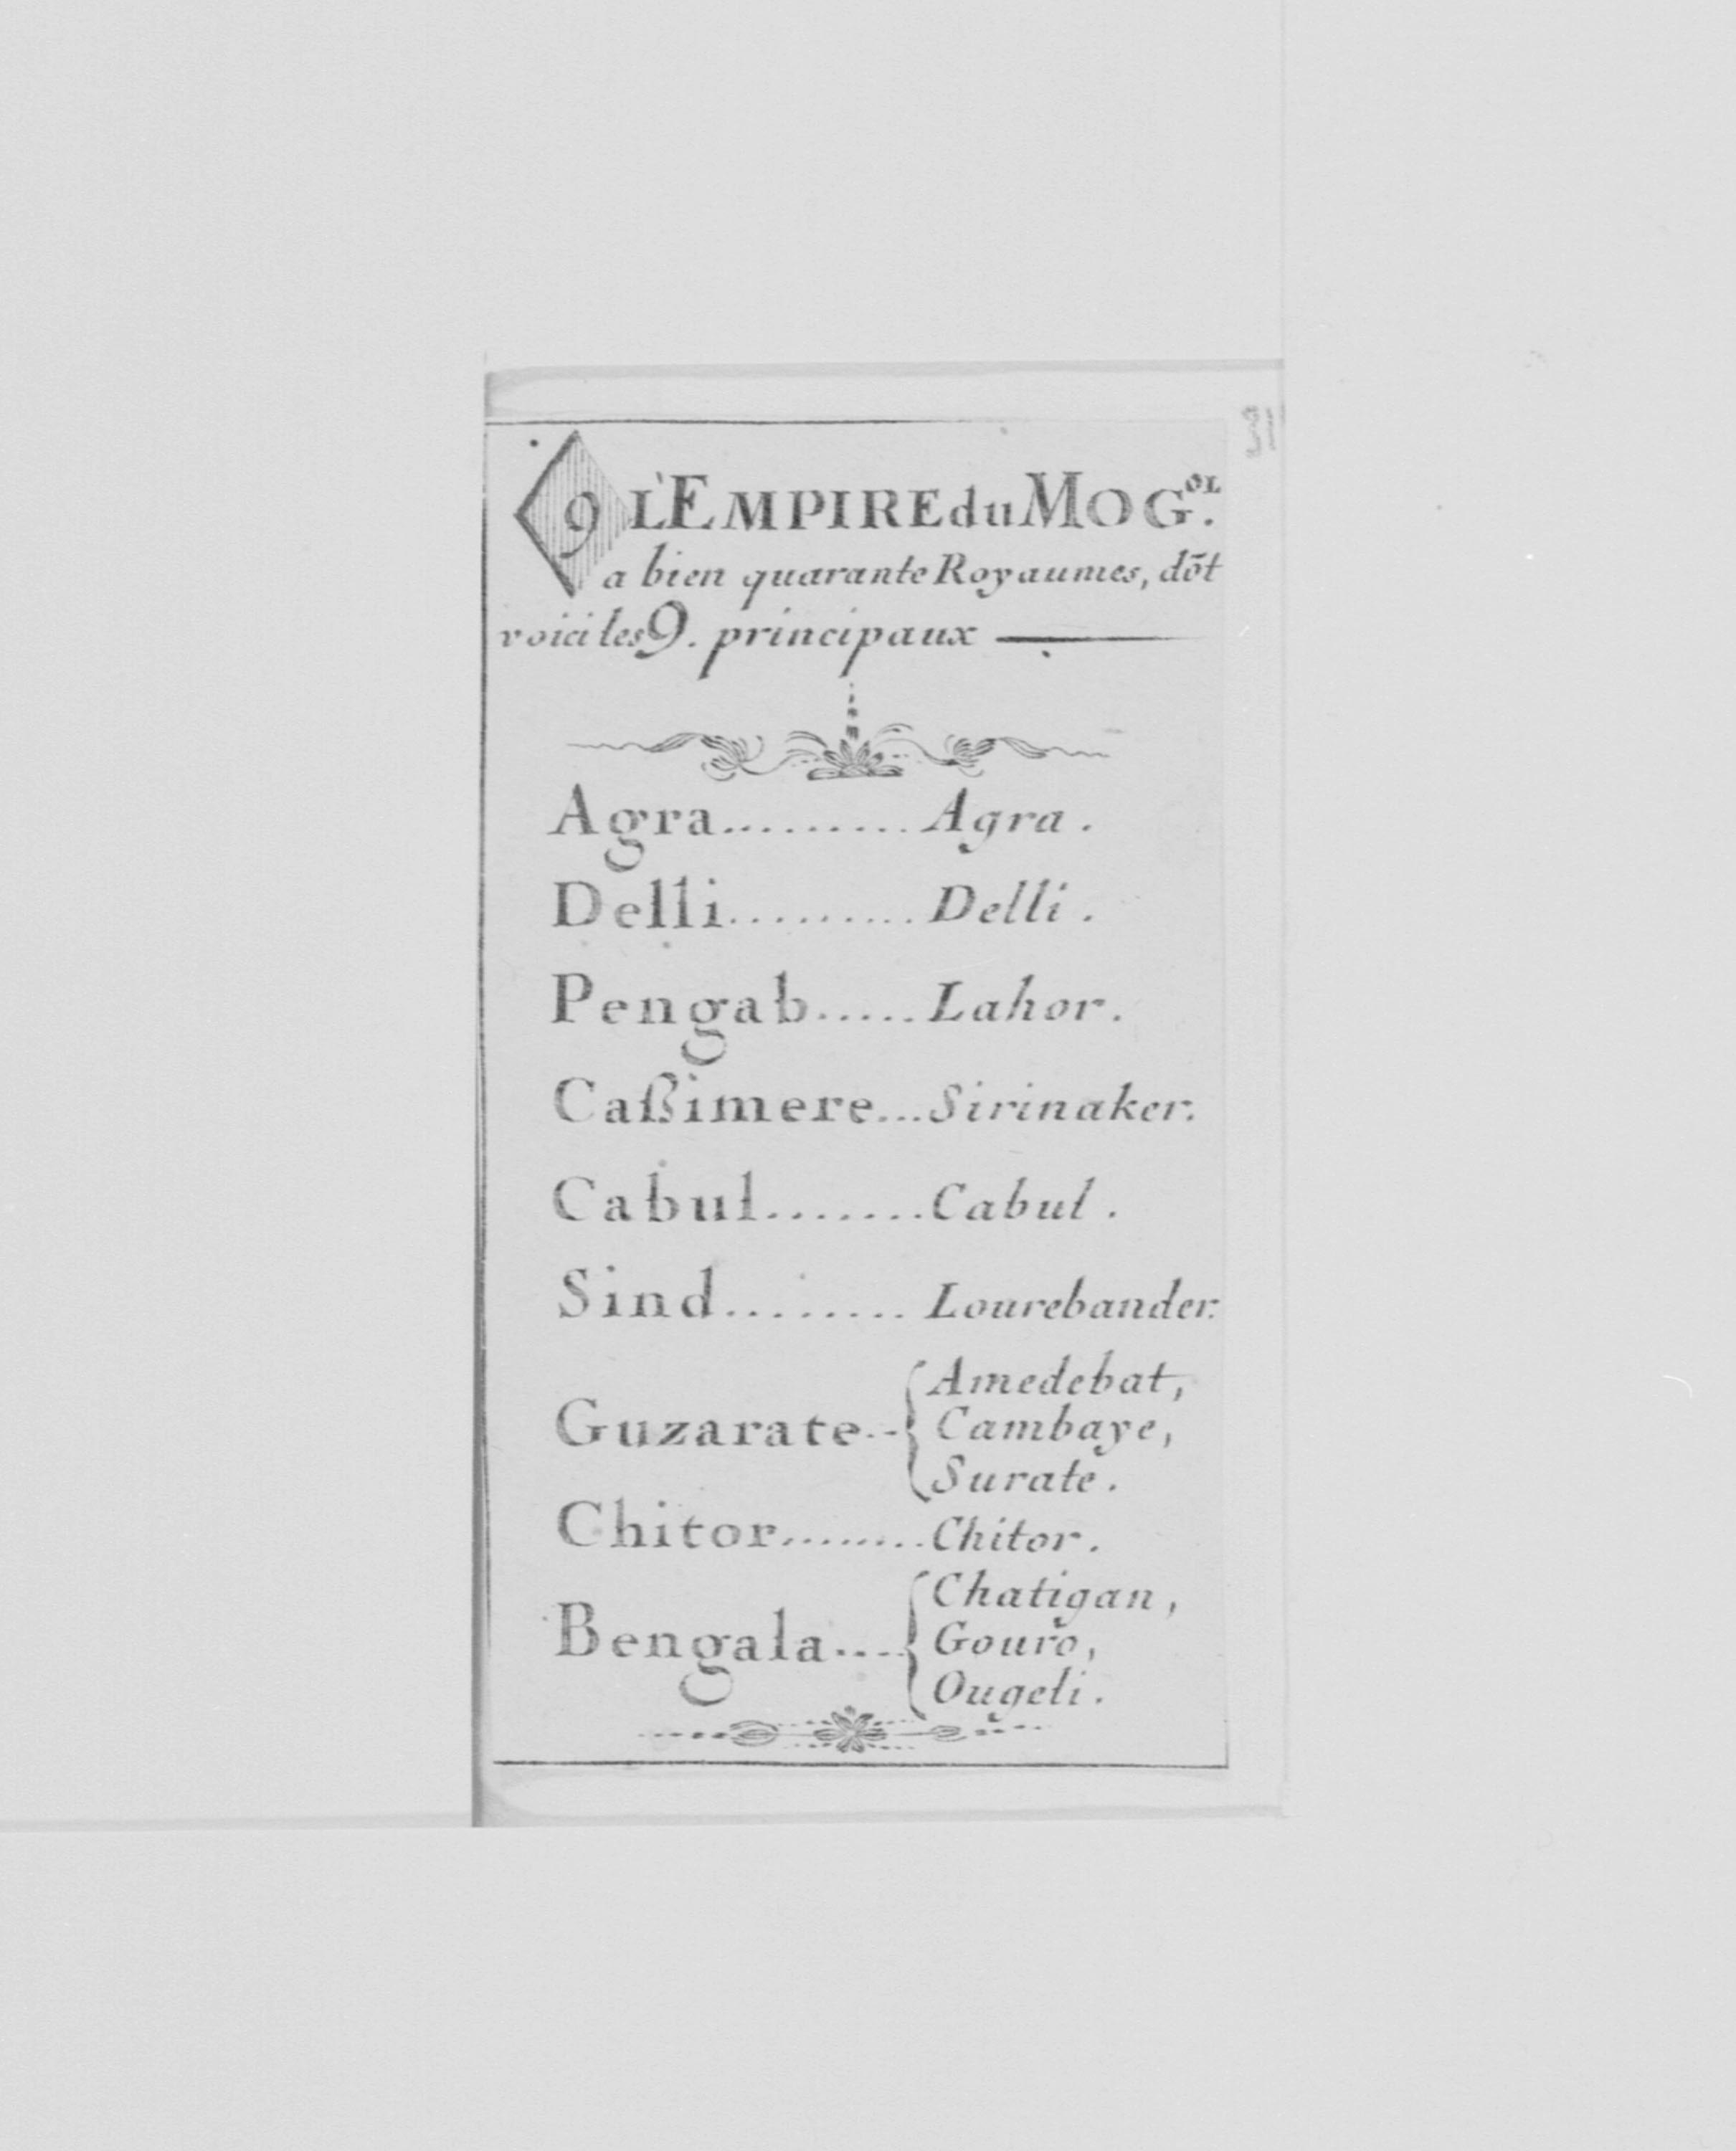 31
9 L'EMPIRE du MOG.OL
a bien quarante Royaumes, dōt
voici les 9. principaux
Agra.......... Agra.
Delli.......... Delli.
Pengab..... Lahor.
Caßimere... Sirinaker.
Cabul........ Cabul.
Sind......... Lourebander.
Guzarate.. { Amedebat,
Cambaye,
Surate.
Chitor........ Chitor.
Bengala.... { Chatigan,
Gouro,
Ougeli.